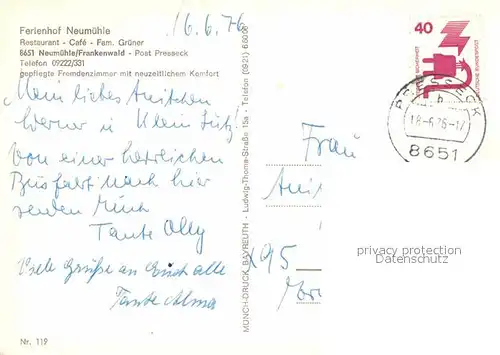 Ferienhof Neumühle
Restaurant - Café - Fam. Grüner
8651 Neumühle/Frankenwald - Post Presseck
Telefon 09222/331
gepflegte Fremdenzimmer mit neuzeitlichem Komfort
16.6.76
Mein liebes Annchen
Werner u. Klein
Von einer herrlichen
Busfahrt nach hier
senden
Tante Olly
Viele Grüße an Euch alle
Tante Alma
Nr. 119
MÜNCH-DRUCK, BAYREUTH - Ludwig-Thoma-Straße 15a - Telefon (0921)
40
DEUTSCHE BUNDESPOST
PRESSECK
b
18.-6.76-17
8651
Frau
95
privacy protection
Datenschutz